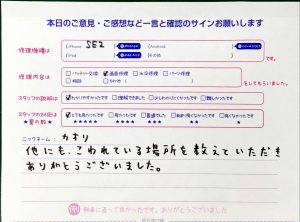 本日のご意見・ご感想など一言と確認のサインお願いします
修理機種は
iPhone SE2
Android
iPad
その他
です。
修理内容は
バッテリー交換 画面修理 水没修理 パーツ修理
相談 その他
をしてもらいました。
スタッフの説明は
わかりやすかったです 理解できました 少しわかりにくかったです 難しかったです
スタッフの対応は
★星の数★
とても良かったです 良かったです 普通でした あまり良くなかったです 良くなかったです
★★★★★ ★★★★ ★★★ ★★ ★
ニックネーム：カオリ
他にも、こわれている場所を教えていただき
ありがとうございました。
無事に直って良かったです。ありがとうございました